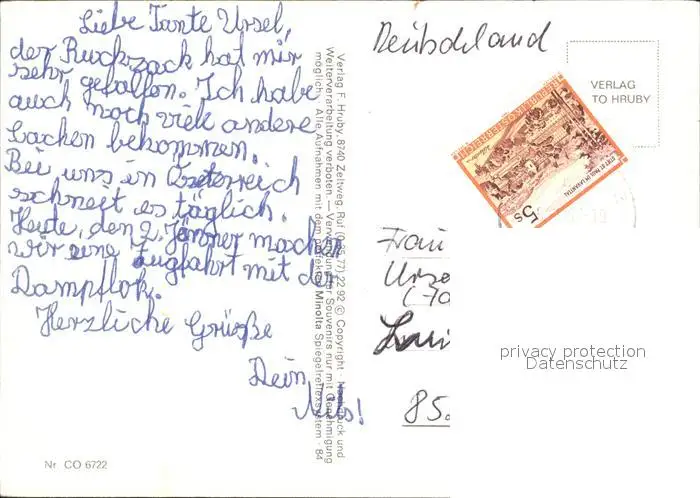 Liebe Tante Ursel,
der Ruckzack hat mir
sehr gefallen. Ich habe
auch noch viele andere
Sachen bekommen.
Bei uns in Österreich
schneit es täglich.
Heute, den 2. Jänner machen
wir eine Zugfahrt mit der
Dampflok.
Herzliche Grüße
Dein
Nr. CO 6722
Verlag F. Hruby, 8740 Zeltweg, Ruf (0 35 77) 22 92 © Copyright · Nachdruck und
Weiterverarbeitung verboten. — Verwendung für Souvenirs nur mit Genehmigung
möglich. Alle Aufnahmen mit dem perfekten Minolta Spiegelreflexsystem · 84
Deutschland
VERLAG
TO HRUBY
STIFT ST. PAUL IM LAVANTTAL
5s
Frau
Urse
85.
privacy protection
Datenschutz